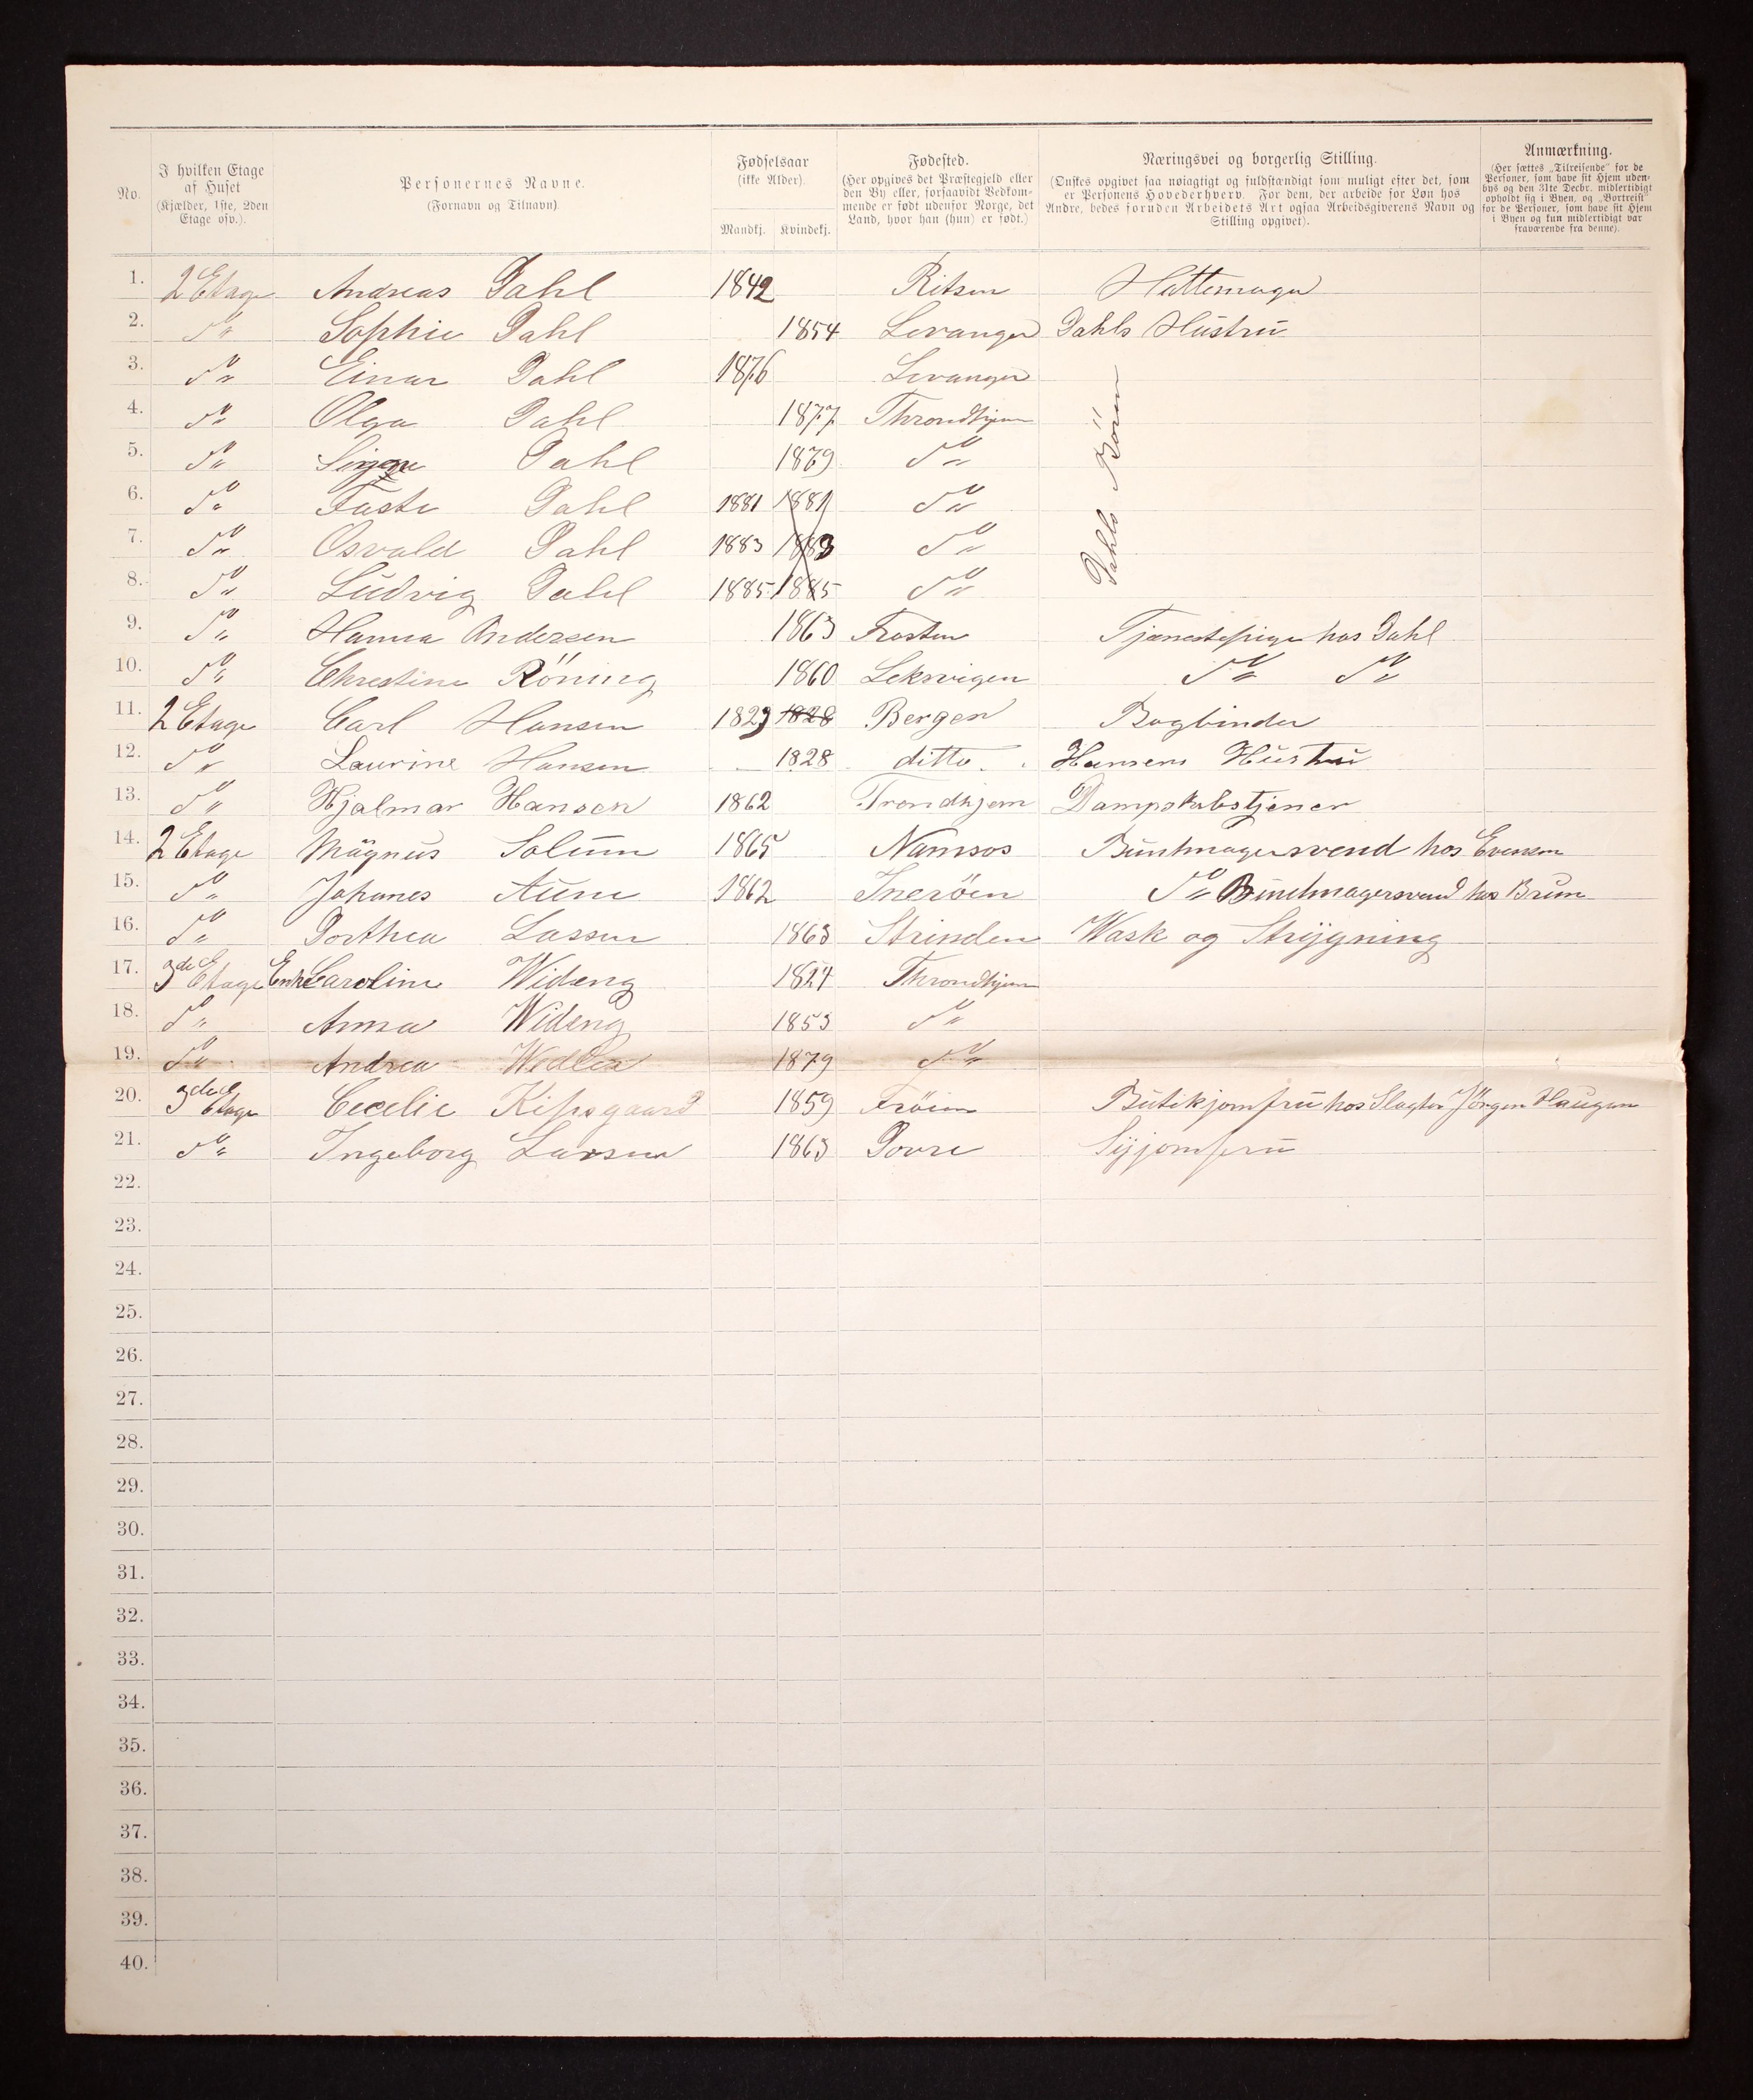 No.
I hvilken Etage af Huset (Kjælder, 1ste, 2den Etage osv.).
Personernes Navne. (Fornavn og Tilnavn)
Fødselsaar (ikke Alder). Mandkj. Kvindekj.
Fødested. (Her opgives det Præstegjeld eller den By eller, forsaavidt Vedkommende er født udenfor Norge, det Land, hvor han (hun) er født.)
Næringsvei og borgerlig Stilling. (Ønskes opgivet saa nøiagtigt og fuldstændigt som muligt efter det, som er Personens Hovederhverv. For dem, der arbeide for Løn hos Andre, bedes foruden Arbeidets Art ogsaa Arbeidsgiverens Navn og Stilling opgivet).
Anmærkning. (Her sættes „Tilreisende" for de Personer, som have sit Hjem udenbys og den 31te Decbr. midlertidigt opholdt sig i Byen, og „Bortreist" for de Personer, som have sit Hjem i Byen og kun midlertidigt var fraværende fra denne).
1. 2 Etage Andreas Dahl 1842 Ritsen Hattemager
2. Do Sophie Dahl 1854 Levanger Dahls Hustru
3. Do Einar Dahl 1876 Levanger
4. Do Olga Dahl 1877 Throndhjem
5. Do Dahl 1879 Do
6. Do Faste Dahl 1881 1881 Do
7. Do Osvald Dahl 1883 1883 Do
8. Do Ludvig Dahl 1885 1885 Do
Dahls Börn
9. Do Hanna Andersen 1863 Frosten Tjenestepige hos Dahl
10. Do Christine Röning 1860 Leksvigen Do Do
11. 2 Etage Carl Hansen 1823 1828 Bergen Bogbinder
12. Do Laurine Hansen 1828 ditto. Hansens Hustru
13. Do Hjalmar Hansen 1862 Trondhjem Dampskibstjener
14. 2 Etage Magnus Solum 1865 Namsos Buntmagersvend hos Evensen
15. Do Johanes Aune 1862 Ineröen Do Buntmagersvend hos Brun
16. Do Dorthea Lassen 1863 Strinden Wask og Strygning
17. 3de Etage Enke Caroline Wideng 1824 Throndhjem
18. Do Anna Wideng 1853 Do
19. Do Andrea 1879 Do
20. 3de Etage Cecelie 1859 Fröien Butikjomfru hos Slagter Jörgen Haugen
21. Do Ingeborg Larsen 1863 Dovre Syjomfru
22.
23.
24.
25.
26.
27.
28.
29.
30.
31.
32.
33.
34.
35.
36.
37.
38.
39.
40.